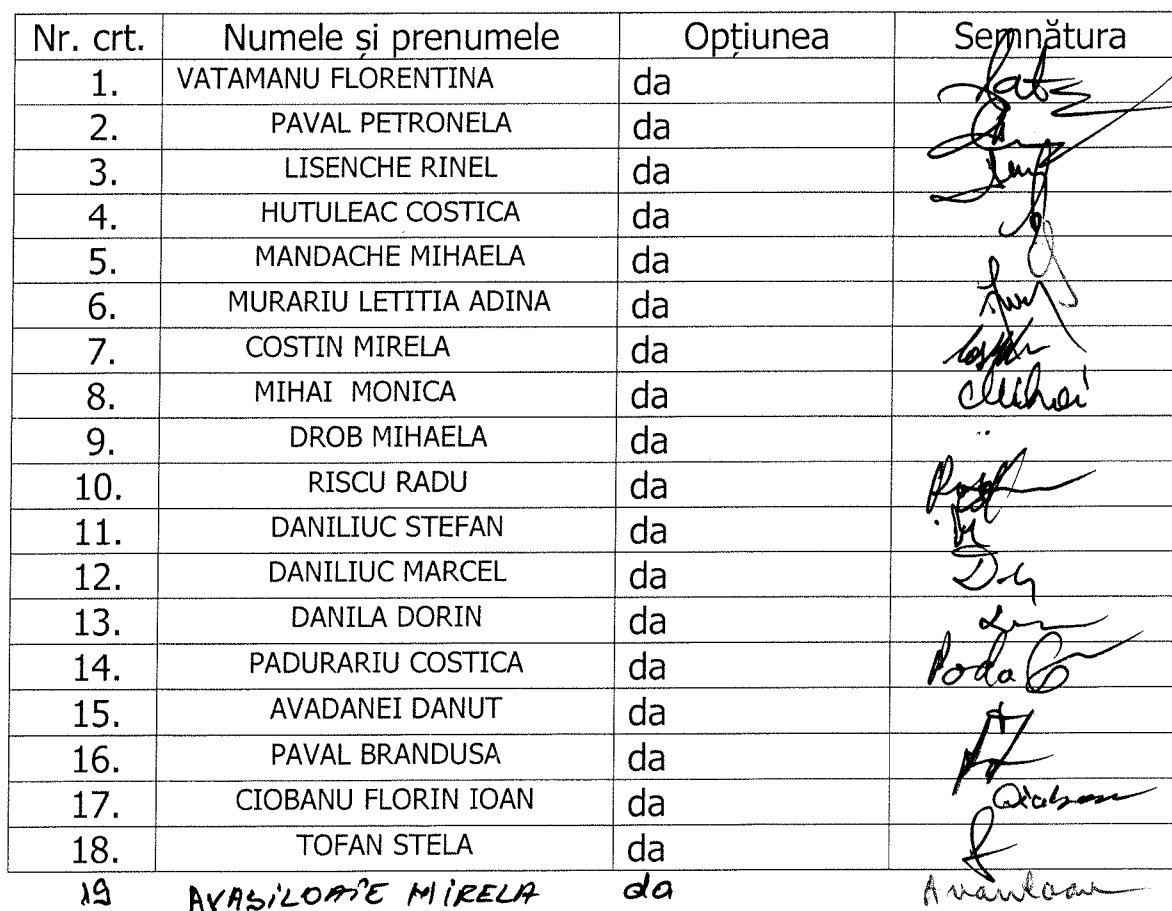 Nr. crt. Numele și prenumele Opțiunea Semnătura
1. VATAMANU FLORENTINA da
2. PAVAL PETRONELA da
3. LISENCHE RINEL da
4. HUTULEAC COSTICA da
5. MANDACHE MIHAELA da
6. MURARIU LETITIA ADINA da
7. COSTIN MIRELA da
8. MIHAI MONICA da
9. DROB MIHAELA da
10. RISCU RADU da
11. DANILIUC STEFAN da
12. DANILIUC MARCEL da
13. DANILA DORIN da
14. PADURARIU COSTICA da
15. AVADANEI DANUT da
16. PAVAL BRANDUSA da
17. CIOBANU FLORIN IOAN da
18. TOFAN STELA da
19 AVASILOAIE MIRELA da